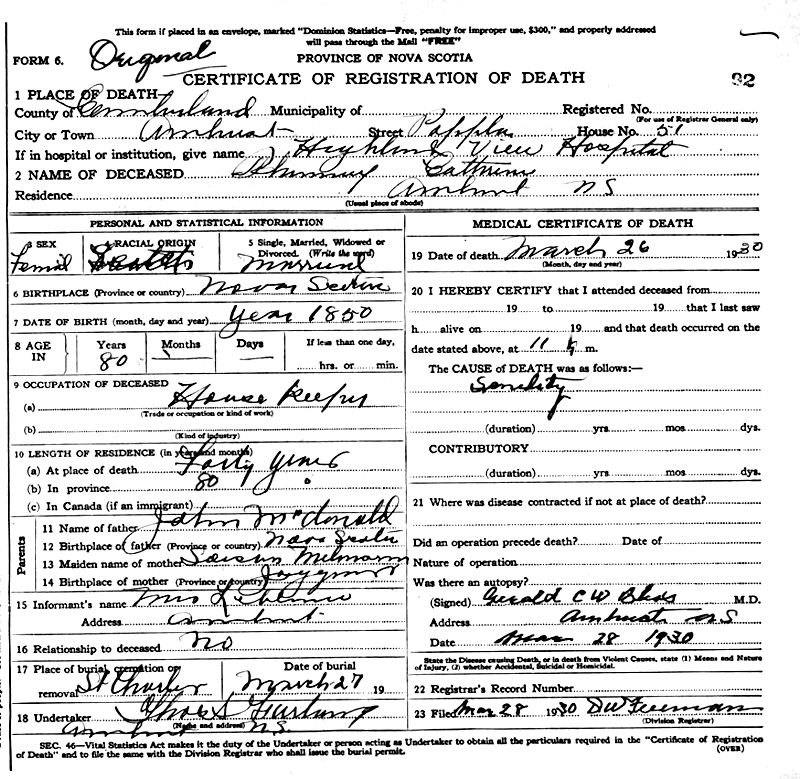 This form if placed in an envelope, marked "Dominion Statistics—Free, penalty for improper use, $300," and properly addressed
will pass through the Mail "FREE"
FORM 6. Original
PROVINCE OF NOVA SCOTIA
CERTIFICATE OF REGISTRATION OF DEATH 92
1 PLACE OF DEATH—
County of Cumberland Municipality of Registered No.
(For use of Registrar General only)
City or Town Amhurst Street House No. 51
If in hospital or institution, give name Highland View Hospital
2 NAME OF DECEASED
Residence Amhurst N S
(Usual place of abode)
PERSONAL AND STATISTICAL INFORMATION
3 SEX 4 RACIAL ORIGIN 5 Single, Married, Widowed or Divorced. (Write the word)
6 BIRTHPLACE (Province or country) Nova
7 DATE OF BIRTH (month, day and year) Year 1850
8 AGE IN Years Months Days If less than one day,
80 hrs. or min.
9 OCCUPATION OF DECEASED
(a) House
(Trade or occupation or kind of work)
(b)
(Kind of industry)
10 LENGTH OF RESIDENCE (in years and months)
(a) At place of death Forty years
(b) In province 80
(c) In Canada (if an immigrant)
Parents
11 Name of father John McDonald
12 Birthplace of father (Province or country) Nova Scotia
13 Maiden name of mother
14 Birthplace of mother (Province or country)
15 Informant's name Mrs
Address Amhurst
16 Relationship to deceased No
17 Place of burial, cremation or removal St Charles Date of burial March 27 19
18 Undertaker
(Name and address) N.S.
MEDICAL CERTIFICATE OF DEATH
19 Date of death March 26 1930
(Month, day and year)
20 I HEREBY CERTIFY that I attended deceased from
19 to 19 that I last saw
h alive on 19 and that death occurred on the
date stated above, at 11 m.
The CAUSE of DEATH was as follows:—
Senility
(duration) yrs. mos. dys.
CONTRIBUTORY
(duration) yrs. mos. dys.
21 Where was disease contracted if not at place of death?
Did an operation precede death? Date of
Nature of operation
Was there an autopsy?
(Signed) Gerald C W M.D.
Address Amhurst N S
Date Mar 28 1930
State the Disease causing Death, or in death from Violent Causes, state (1) Means and Nature
of Injury, (2) whether Accidental, Suicidal or Homicidal.
22 Registrar's Record Number
23 Filed Mar 28 1930 D W Freeman
(Division Registrar)
SEC. 46—Vital Statistics Act makes it the duty of the Undertaker or person acting as Undertaker to obtain all the particulars required in the "Certificate of Registration
of Death" and to file the same with the Division Registrar who shall issue the burial permit. (OVER)